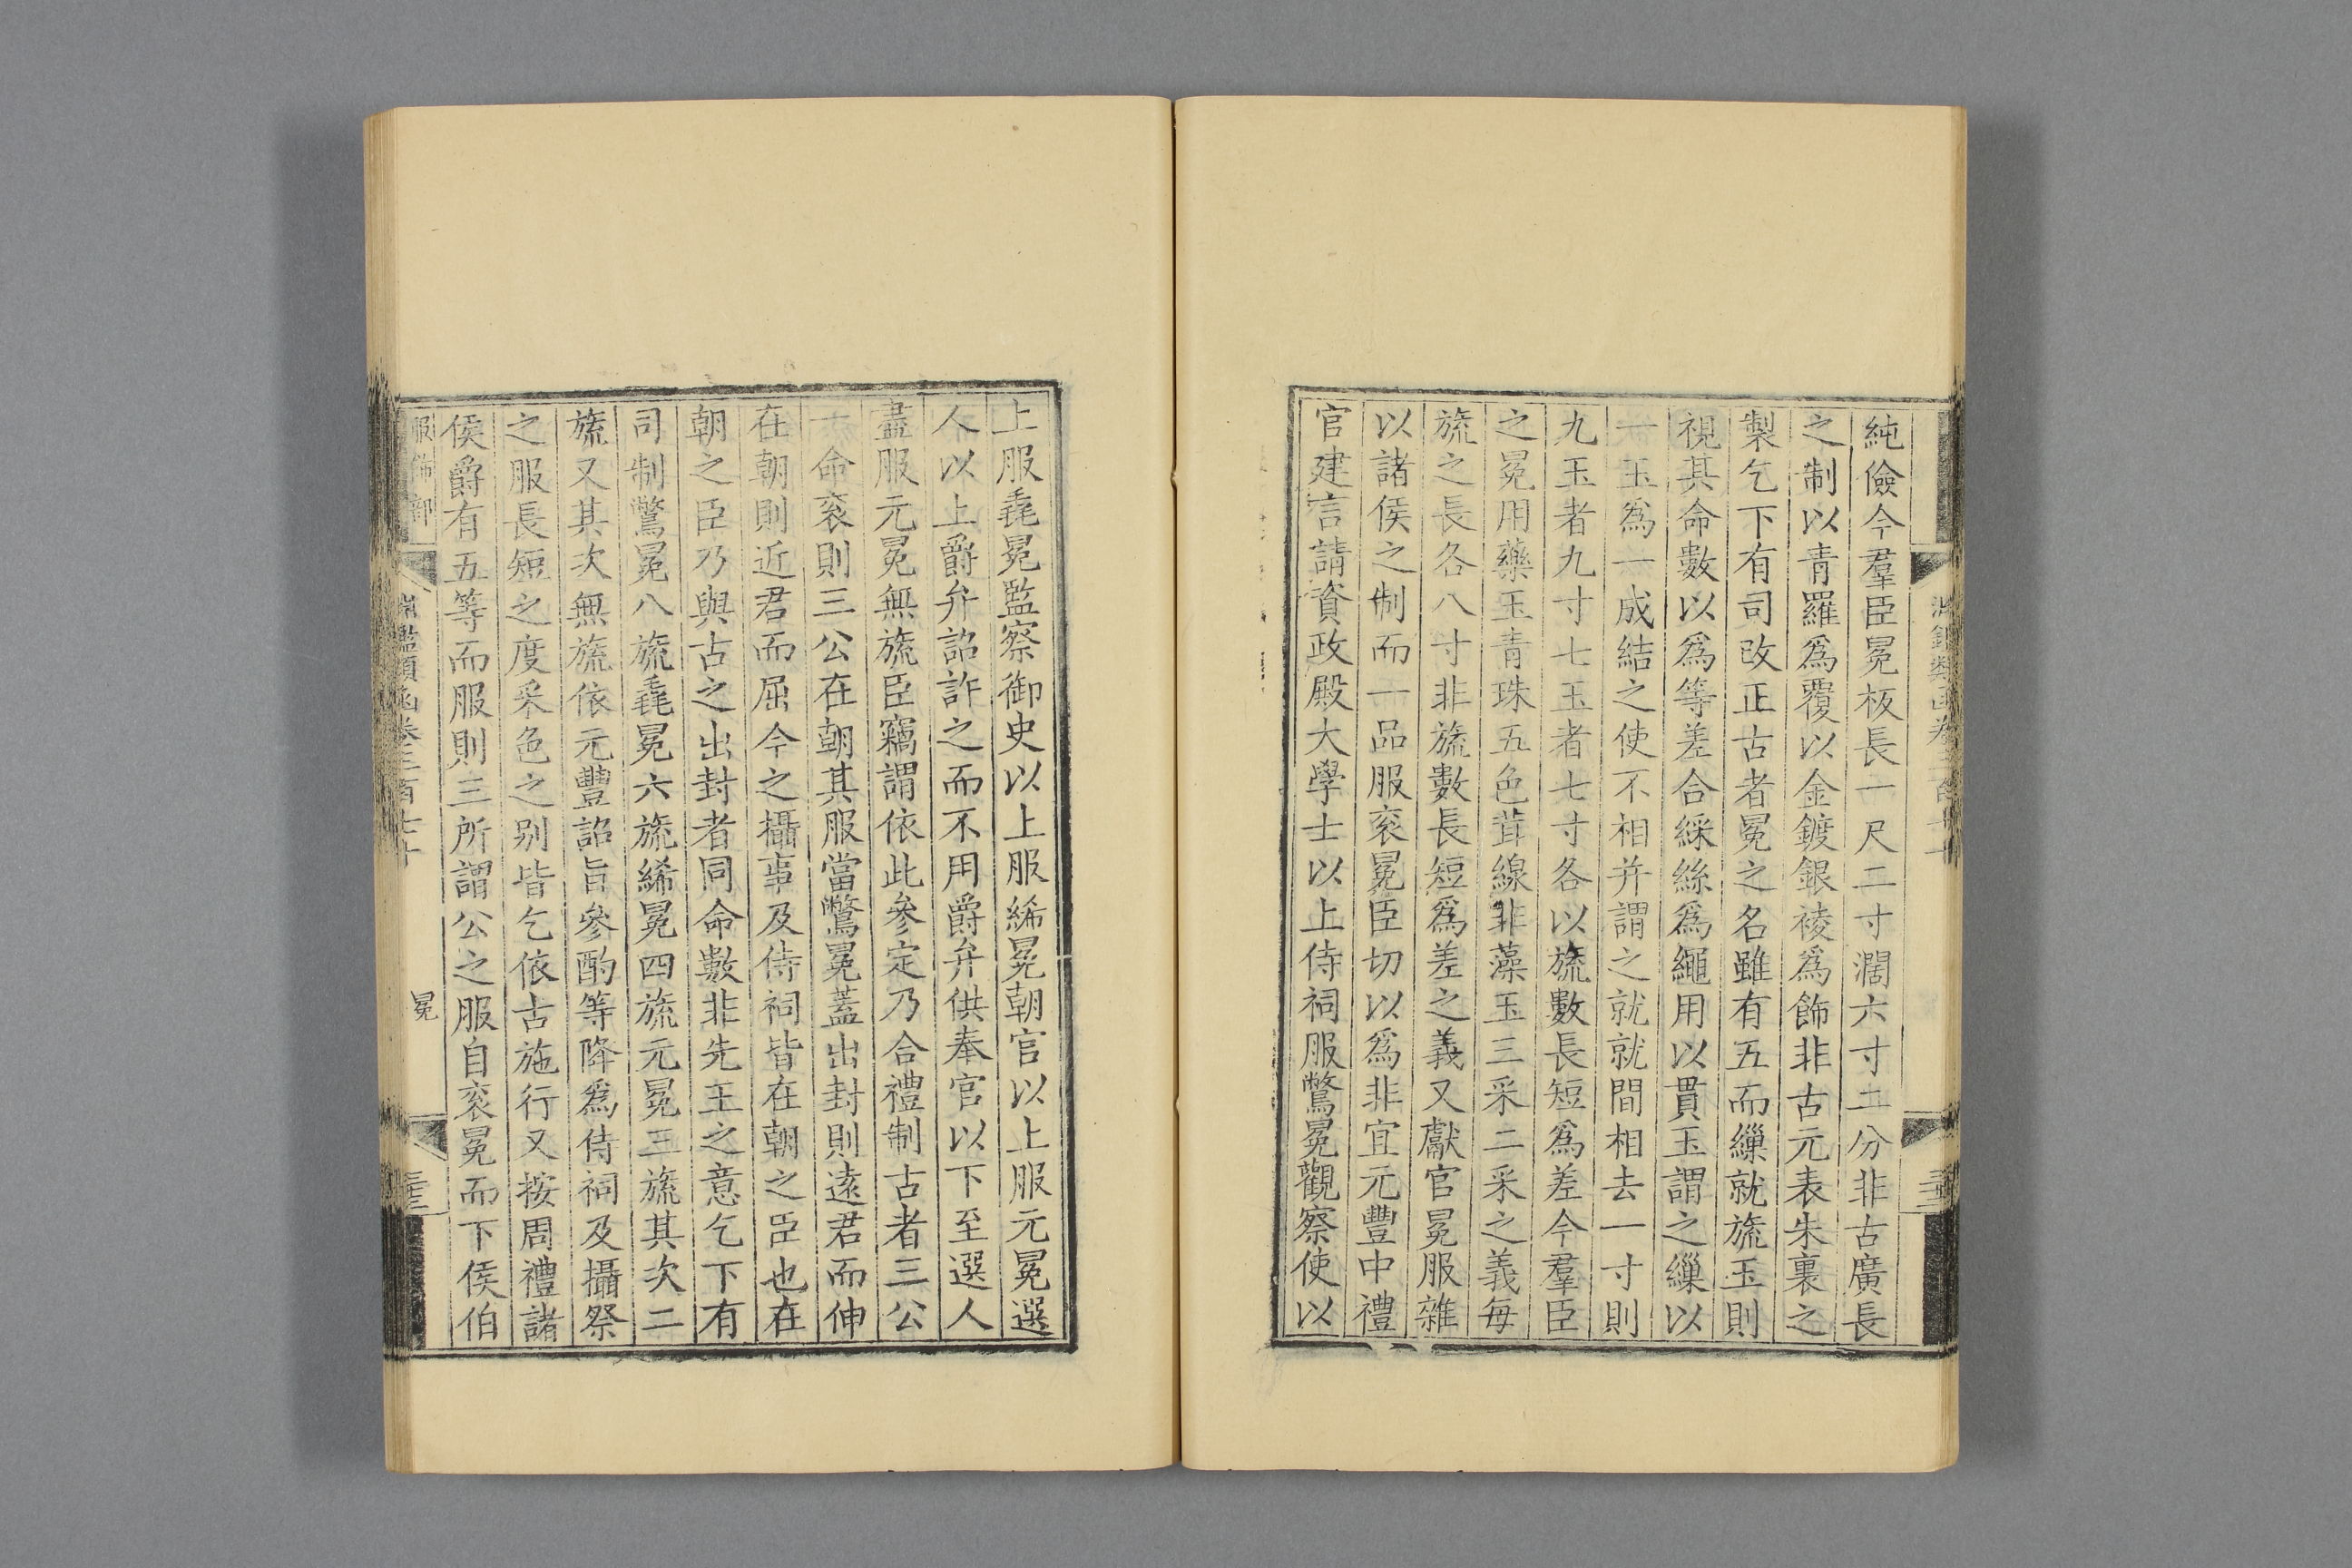 純儉今羣臣冕板長一尺二寸濶六寸二分非古廣長
之制以青羅爲覆以金鍍銀裬爲飾非古元表朱裏之
製乞下有司改正古者冕之名雖有五而繅就旒玉則
視其命數以爲等差合綵絲爲繩用以貫玉謂之繅以
一玉爲一成結之使不相并謂之就就間相去一寸則
九玉者九寸七玉者七寸各以旒數長短爲差今羣臣
之冕用藥玉青珠五色茸線非藻玉三采二采之義每
旒之長各八寸非旒數長短爲差之義又獻官冕服雜
以諸侯之制而一品服衮冕臣切以爲非宜元豐中禮
官建言請資政殿大學士以上侍祠服鷩冕觀察使以
上服毳冕監察御史以上服絺冕朝官以上服元冕選
人以上爵弁詔許之而不用爵弁供奉官以下至選人
盡服元冕無旒臣竊謂依此參定乃合禮制古者三公
一命衮則三公在朝其服當鷩冕蓋出封則遠君而伸
在朝則近君而屈今之攝事及侍祠皆在朝之臣也在
朝之臣乃與古之出封者同命數非先王之意乞下有
司制鷩冕八旒毳冕六旒絺冕四旒元冕三旒其次二
旒又其次無旒依元豐詔旨參酌等降爲侍祠及攝祭
之服長短之度采色之别皆乞依古施行又按周禮諸
侯爵有五等而服則三所謂公之服自衮冕而下侯伯
服飾部
淵鑑類函卷三百七十
冕